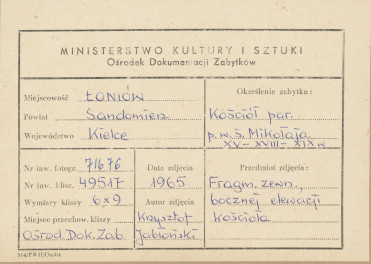 MINISTERSTWO KULTURY I SZTUKI
Ośrodek Dokumentacji Zabytków
Miejscowość ŁONIÓW
Powiat Sandomierz
Województwo Kielce
Określenie zabytku:
Kościół par.
p.w. Ś. Mikołaja
XV - XVIII - XIX w
Nr inw. fotogr. 71676
Nr inw. klisz. 49517
Wymiary kliszy 6x9
Miejsce przechow. kliszy
Ośrod. Dok. Zab
Data zdjęcia
1965
Autor zdjęcia
Krzysztof
Jabłoński
Przedmiot zdjęcia:
Fragm. zewn.,
bocznej elewacji
kościoła